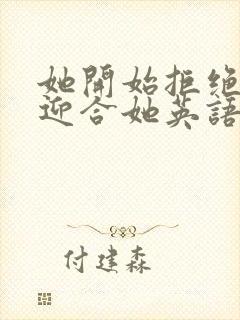 她開始拒绝
迎合她英語
付建森